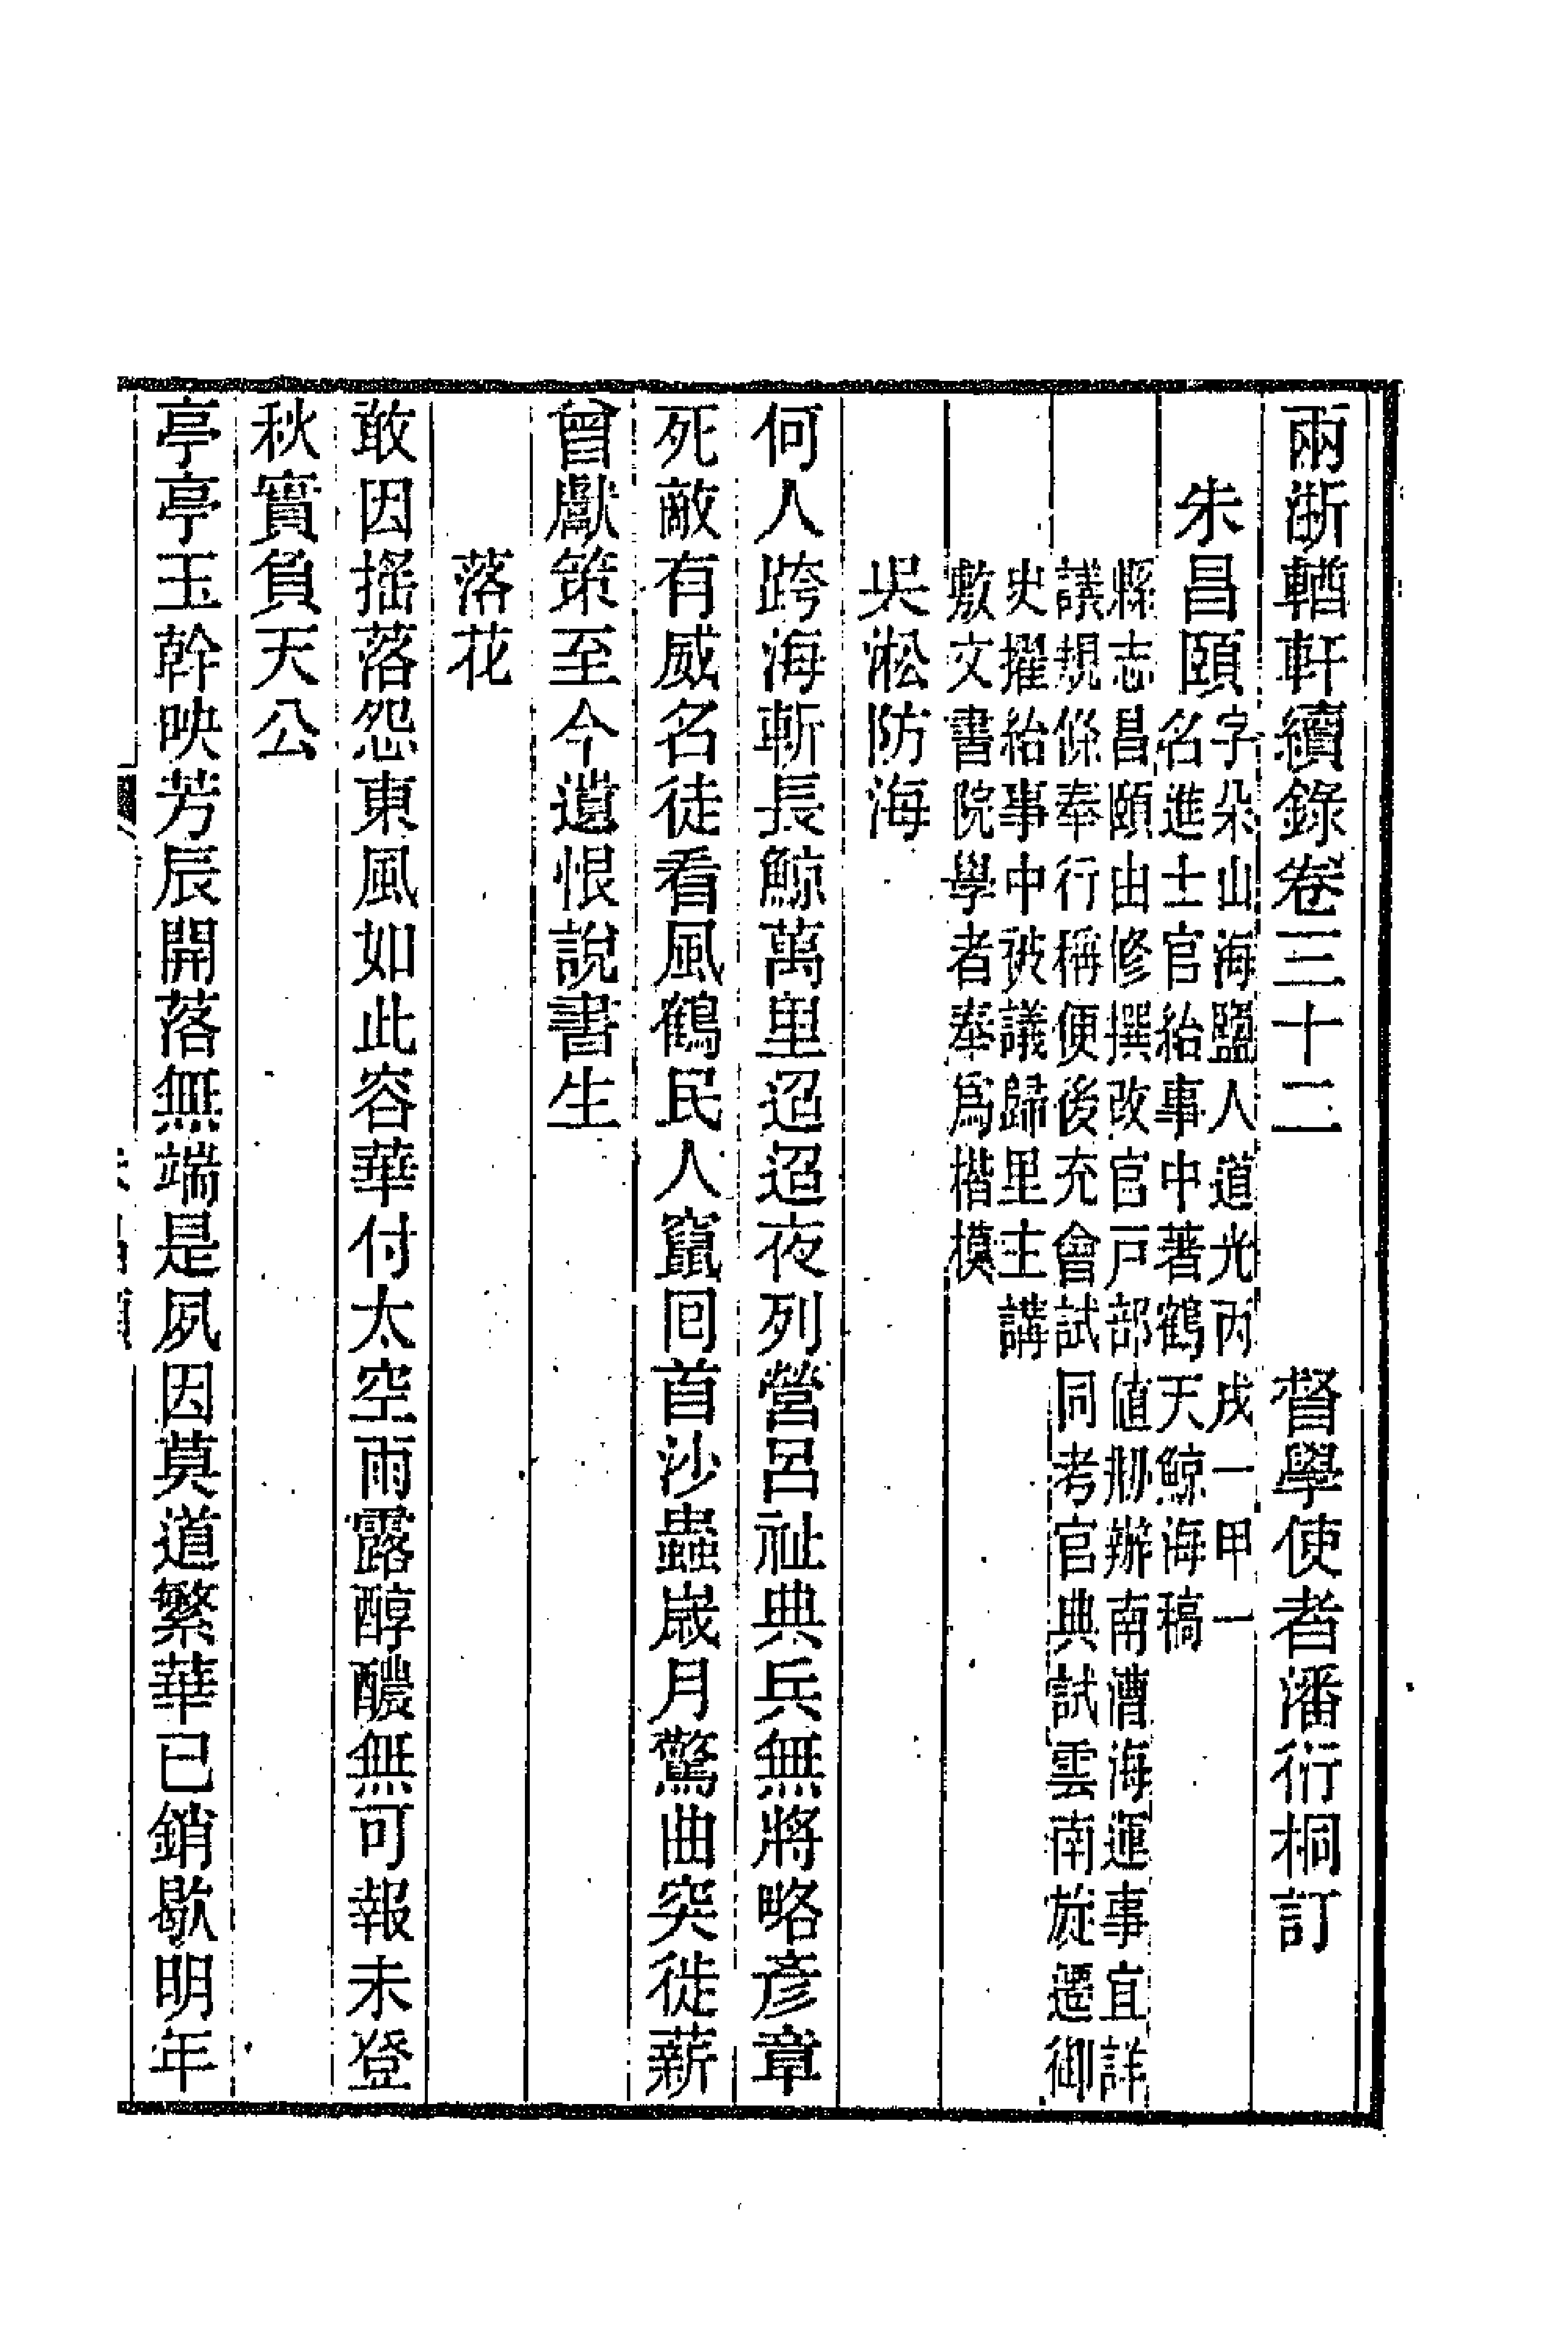 兩浙輶軒續錄卷三十二　　　督學使者潘衍桐訂
朱昌頤
字朵山海鹽人道光丙戌一甲一
名進士官給事中著鶴天鯨海稿
縣志昌頤由修撰改官戸部值剏辦南漕海運事宜詳
議規條奉行稱便後充會試同考官典試雲南旋遷御
史擢給事中被議歸里主講
敷文書院學者奉爲楷模
吳淞防海
何人跨海斬長鯨萬里迢迢夜列營呂祉典兵無將略彥章
死敵有威名徒看風鶴民人竄回首沙蟲歲月驚曲突徙薪
曾獻策至今遺恨說書生
落花
敢因搖落怨東風如此容華付太空雨露醇醲無可報未登
秋實負天公
亭亭玉幹映芳辰開落無端是夙因莫道繁華已銷歇明年